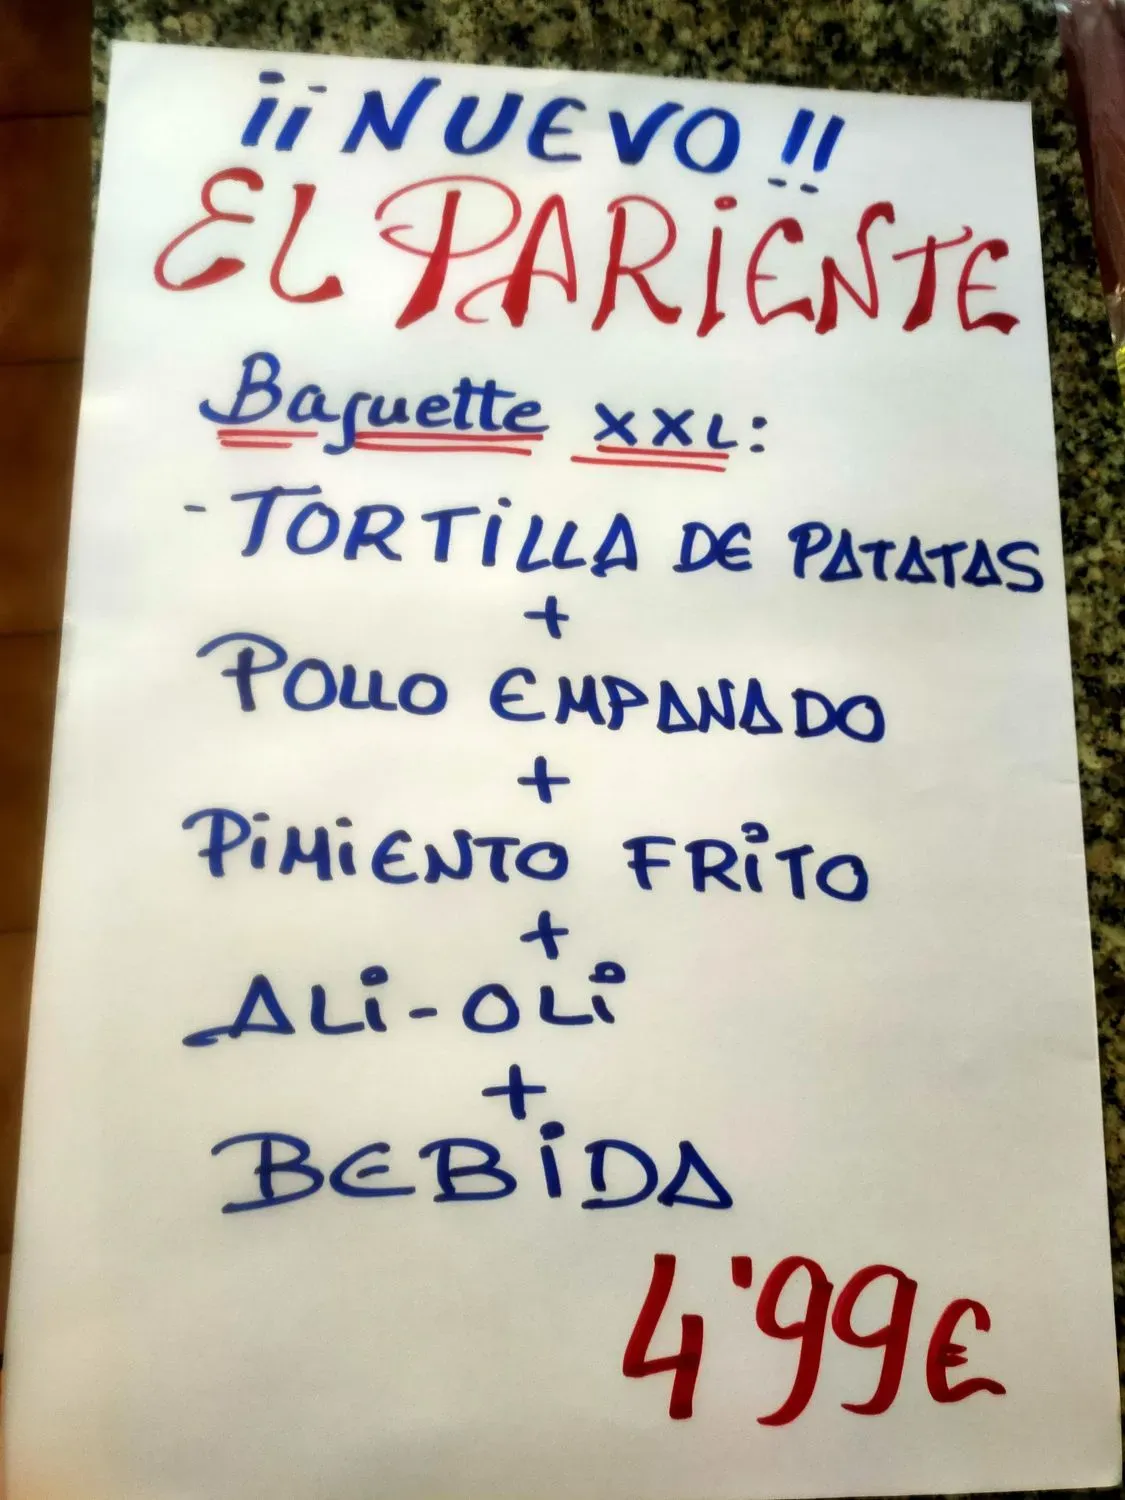 ¡¡NUEVO!!
EL PARIENTE
Baguette XXL:
- TORTILLA DE PATATAS
+
POLLO EMPANADO
+
PIMIENTO FRITO
+
ALI-OLI
+
BEBIDA
4'99€